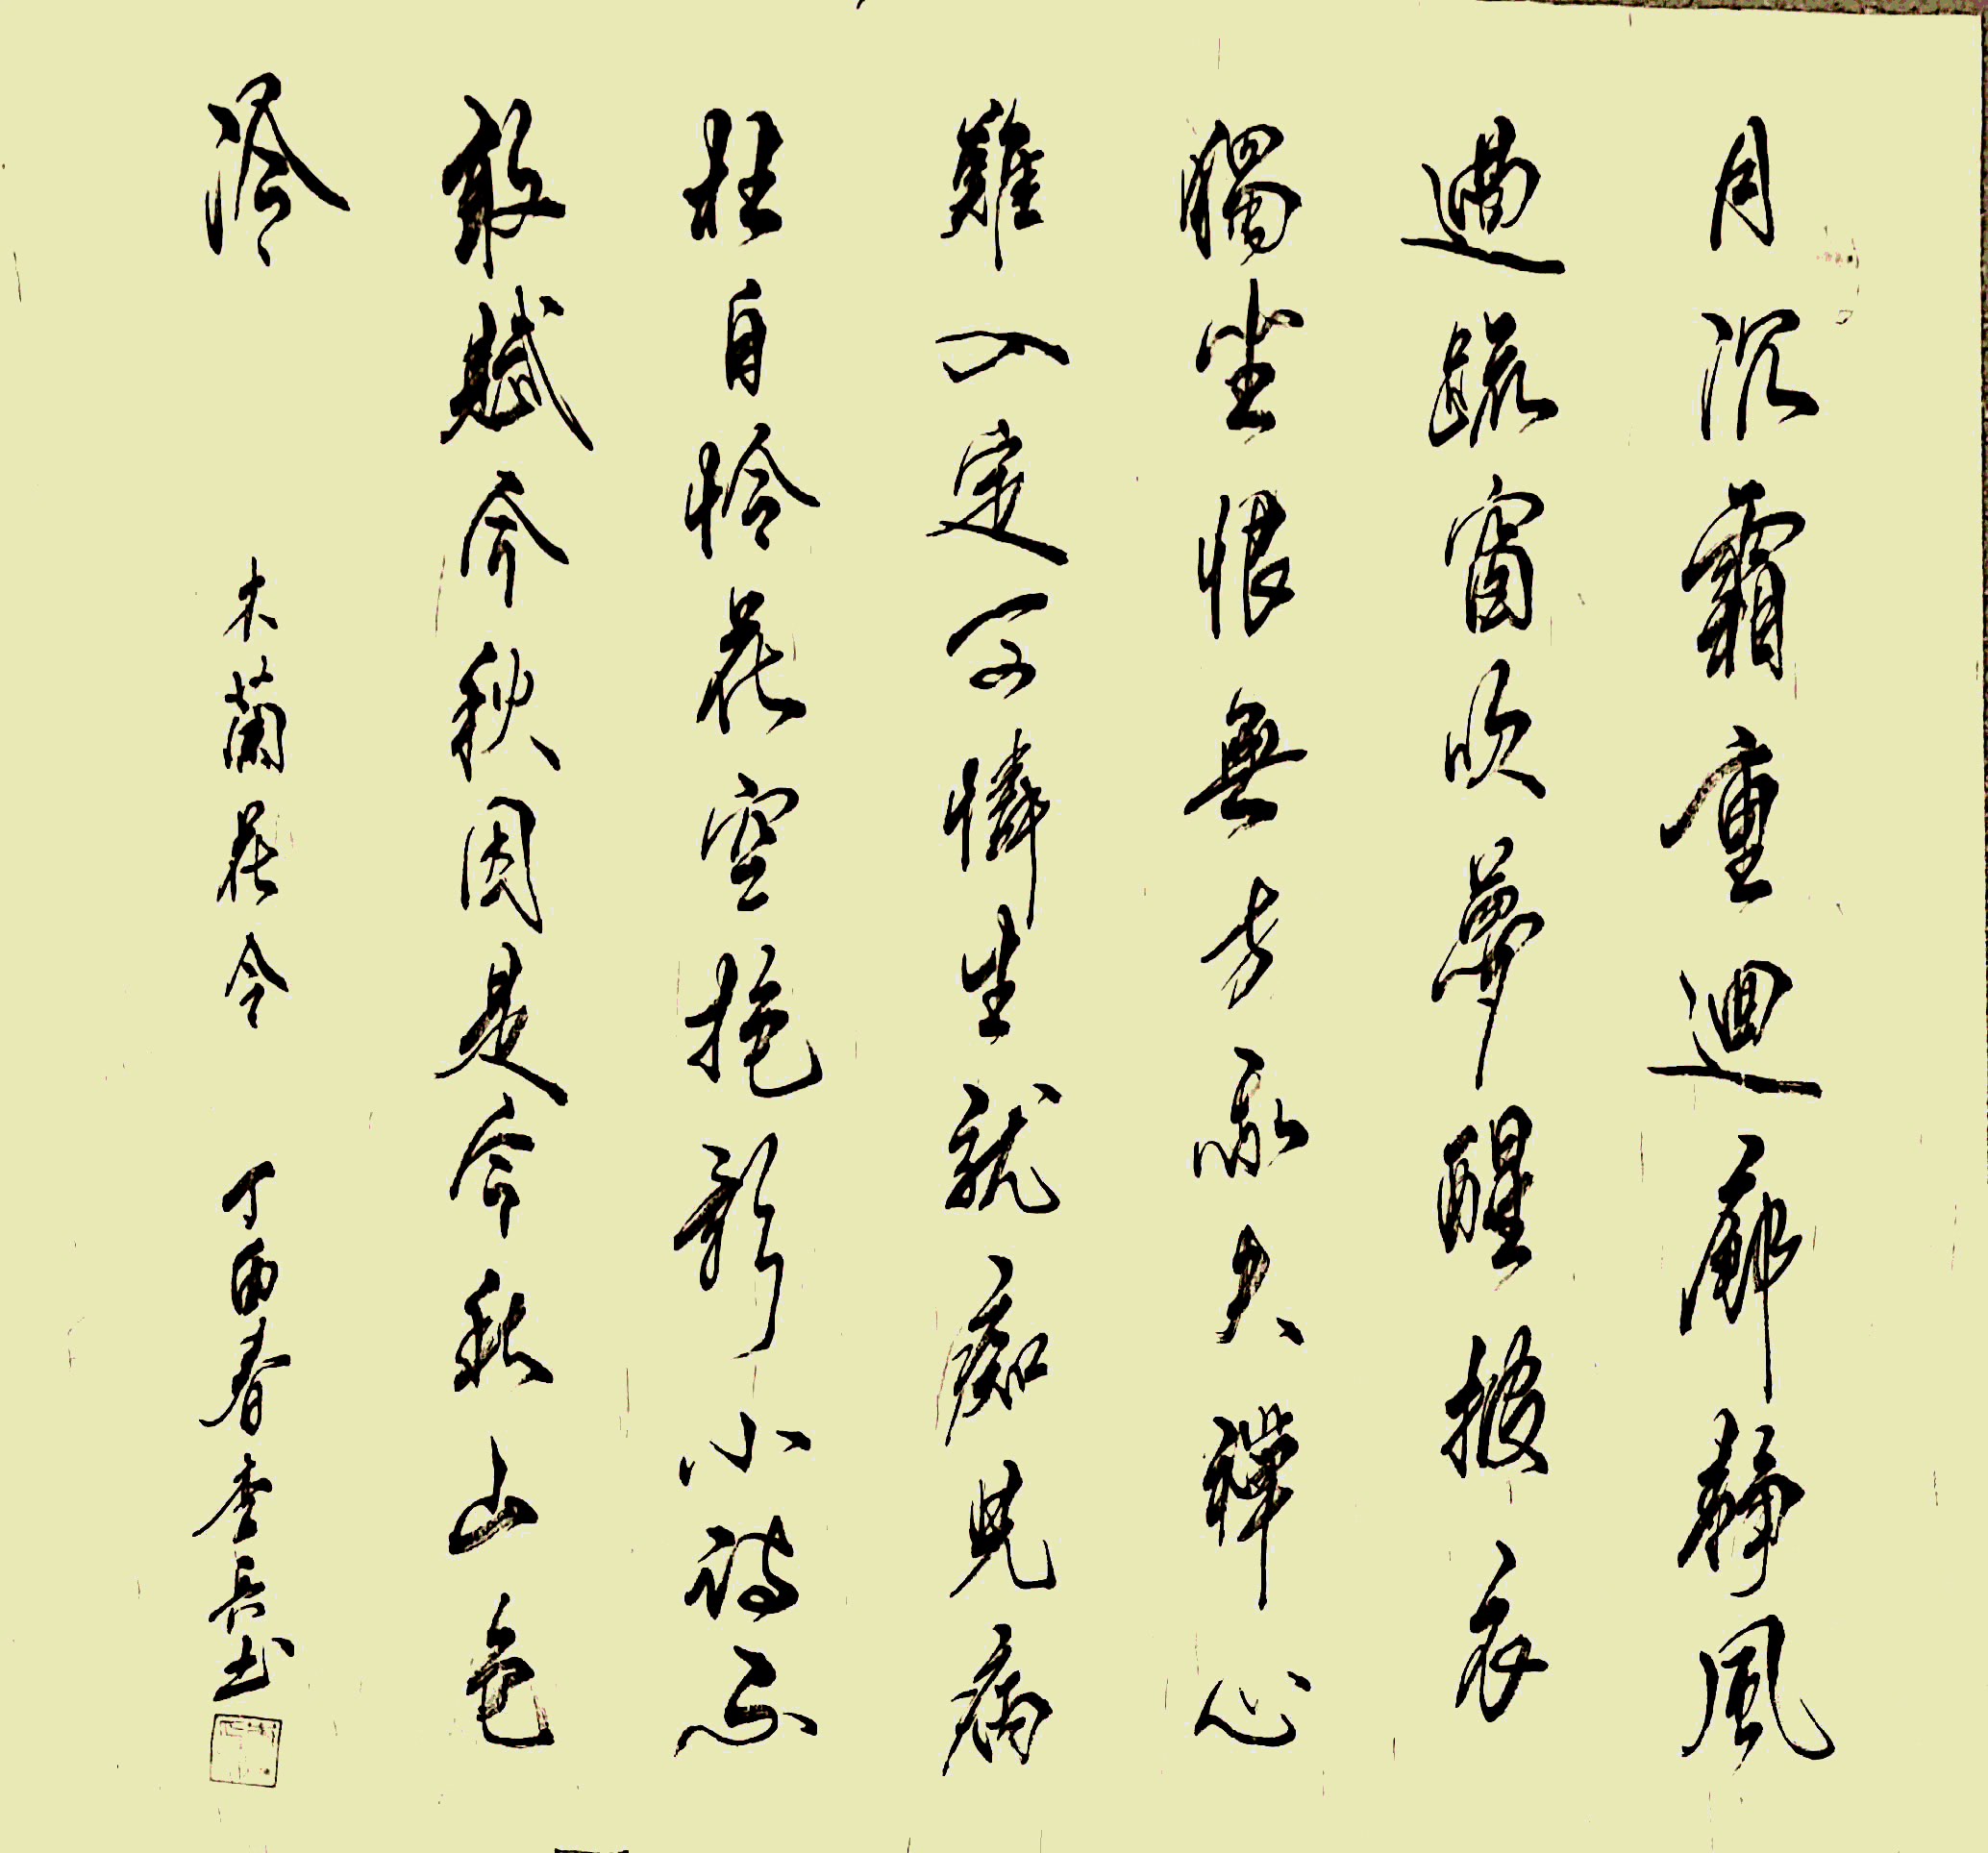 月沉霜重迴廊靜風
過疏窗吹夢醒披衣
獨坐恨無方永夜禪心
難入定可憐生就痴兒病
枉自怜花空抱影小詩不
敢賦今秋因是今秋山色
冷 木蘭花令 丁酉春李書